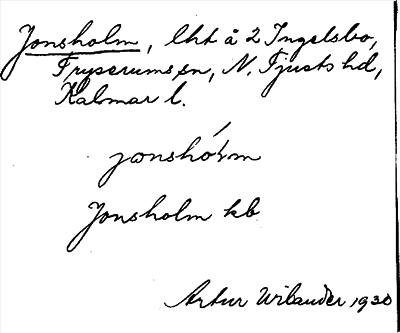 Jonsholm, lht å 2 Ingelsbo,
Fryserums sn, N. Tjusts hd,
Kalmar l.
jwnshóɫm
Jonsholm kb
Artur Wilander 1930